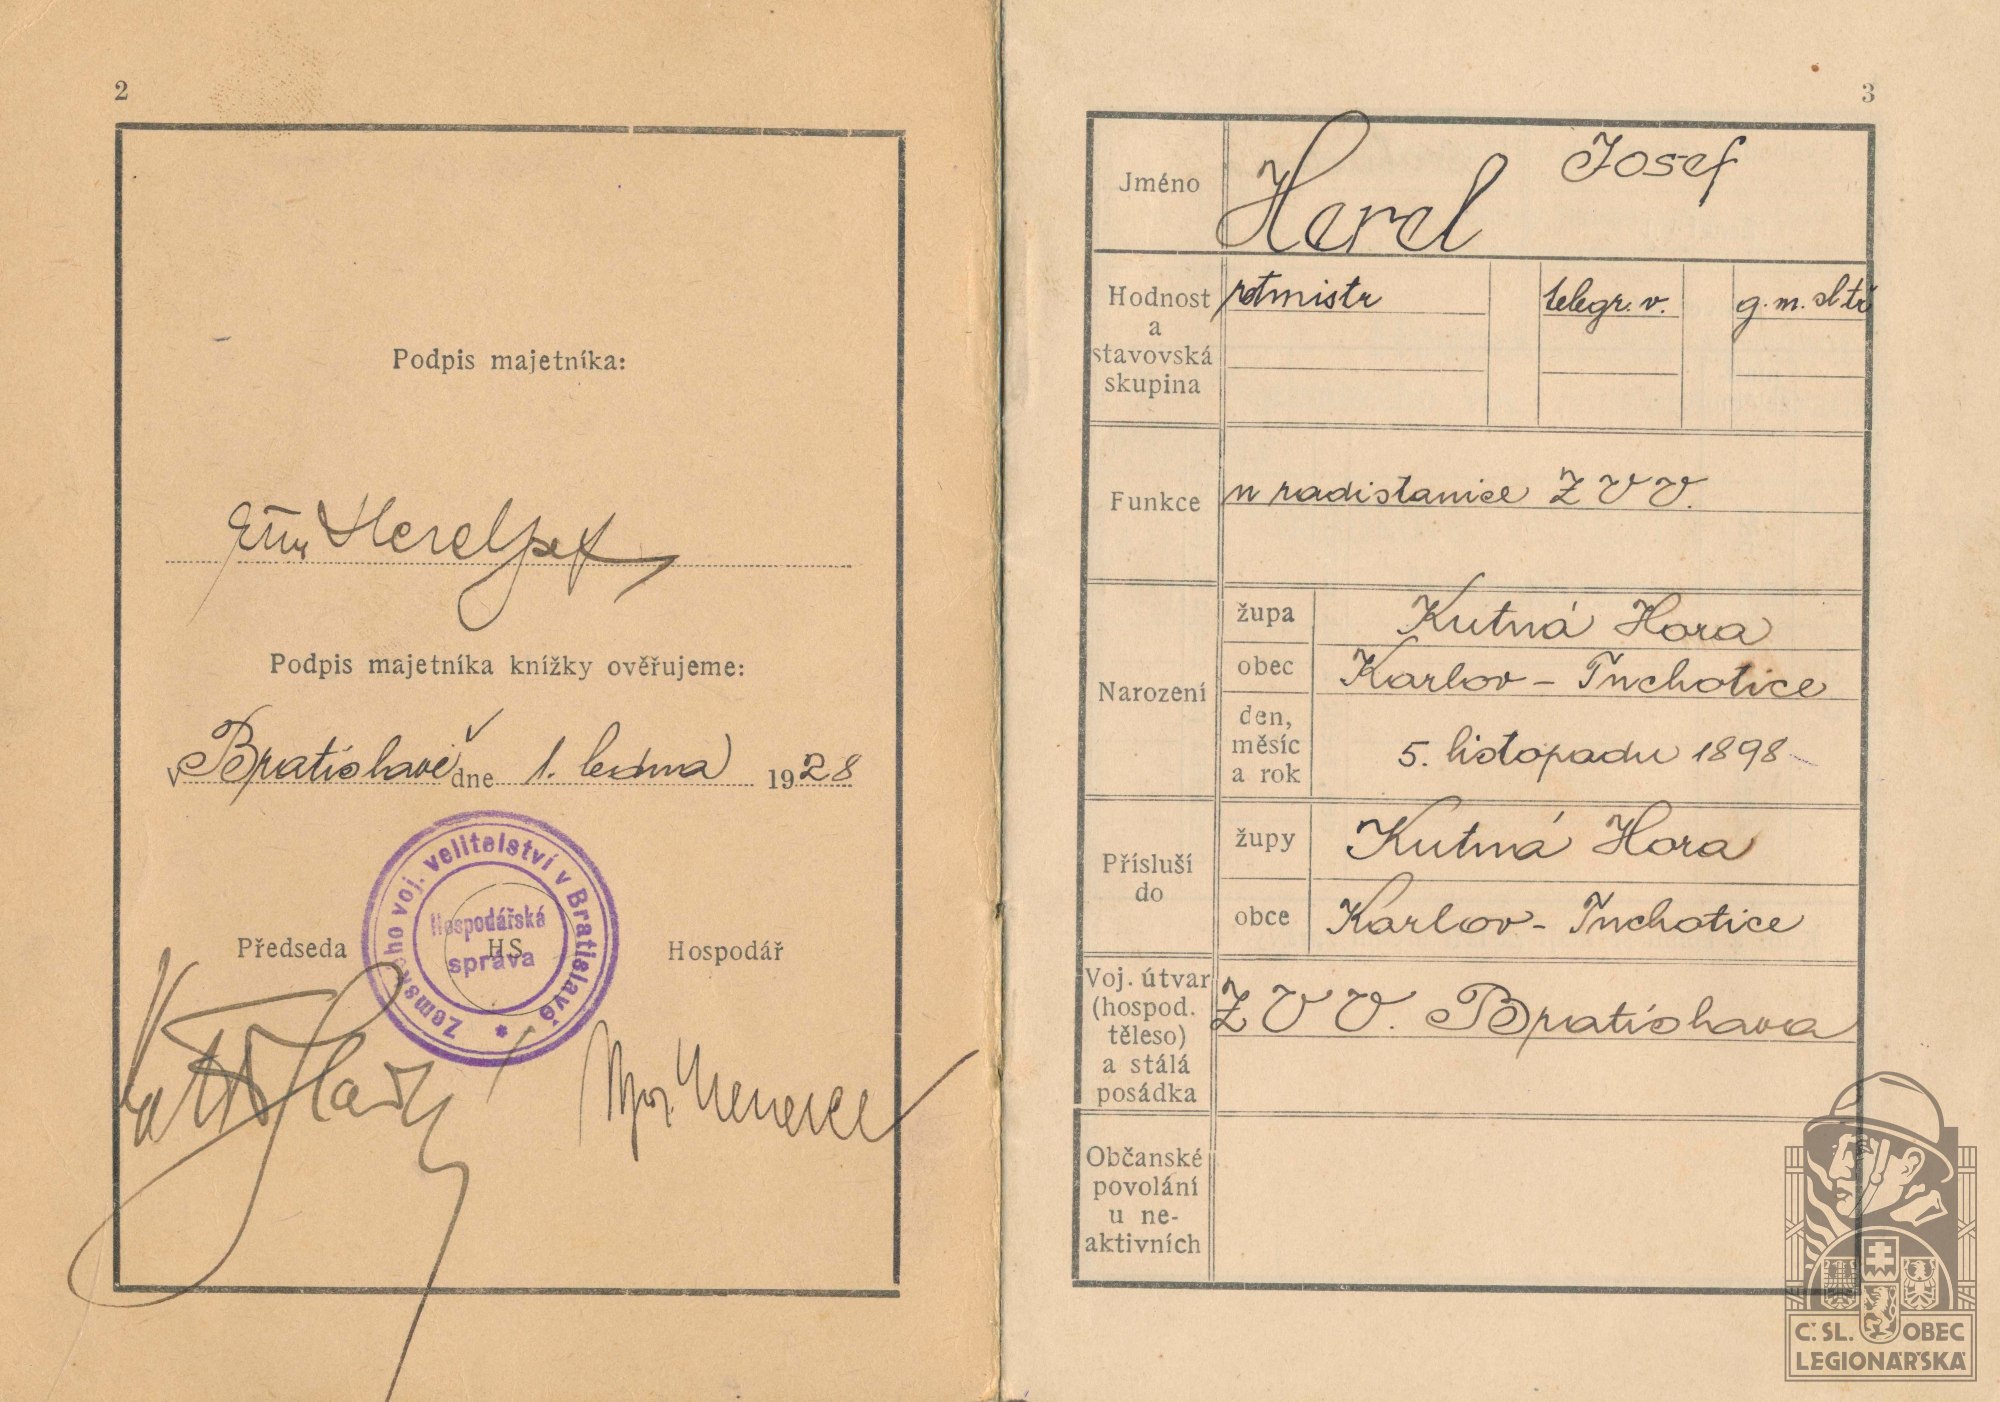 2
Podpis majetníka:
Herel Josef
Podpis majetníka knížky ověřujeme:
v Bratislavě dne 1. ledna 1928
Zemského voj. velitelství v Bratislavě *
Hospodářská
správa
HS
Předseda
Hospodář
3
Jméno
Herel Josef
Hodnost
a
stavovská
skupina
rotmistr
telegr. v.
g. m. sl. tř
Funkce
u radiostanice Z V V.
Narození
župa
Kutná Hora
obec
Karlov - Tuchotice
den,
měsíc
a rok
5. listopadu 1898
Přísluší
do
župy
Kutná Hora
obce
Karlov - Tuchotice
Voj. útvar
(hospod.
těleso)
a stálá
posádka
Z V V. Bratislava
Občanské
povolání
u ne-
aktivních
Č. SL. OBEC
LEGIONÁŘSKÁ